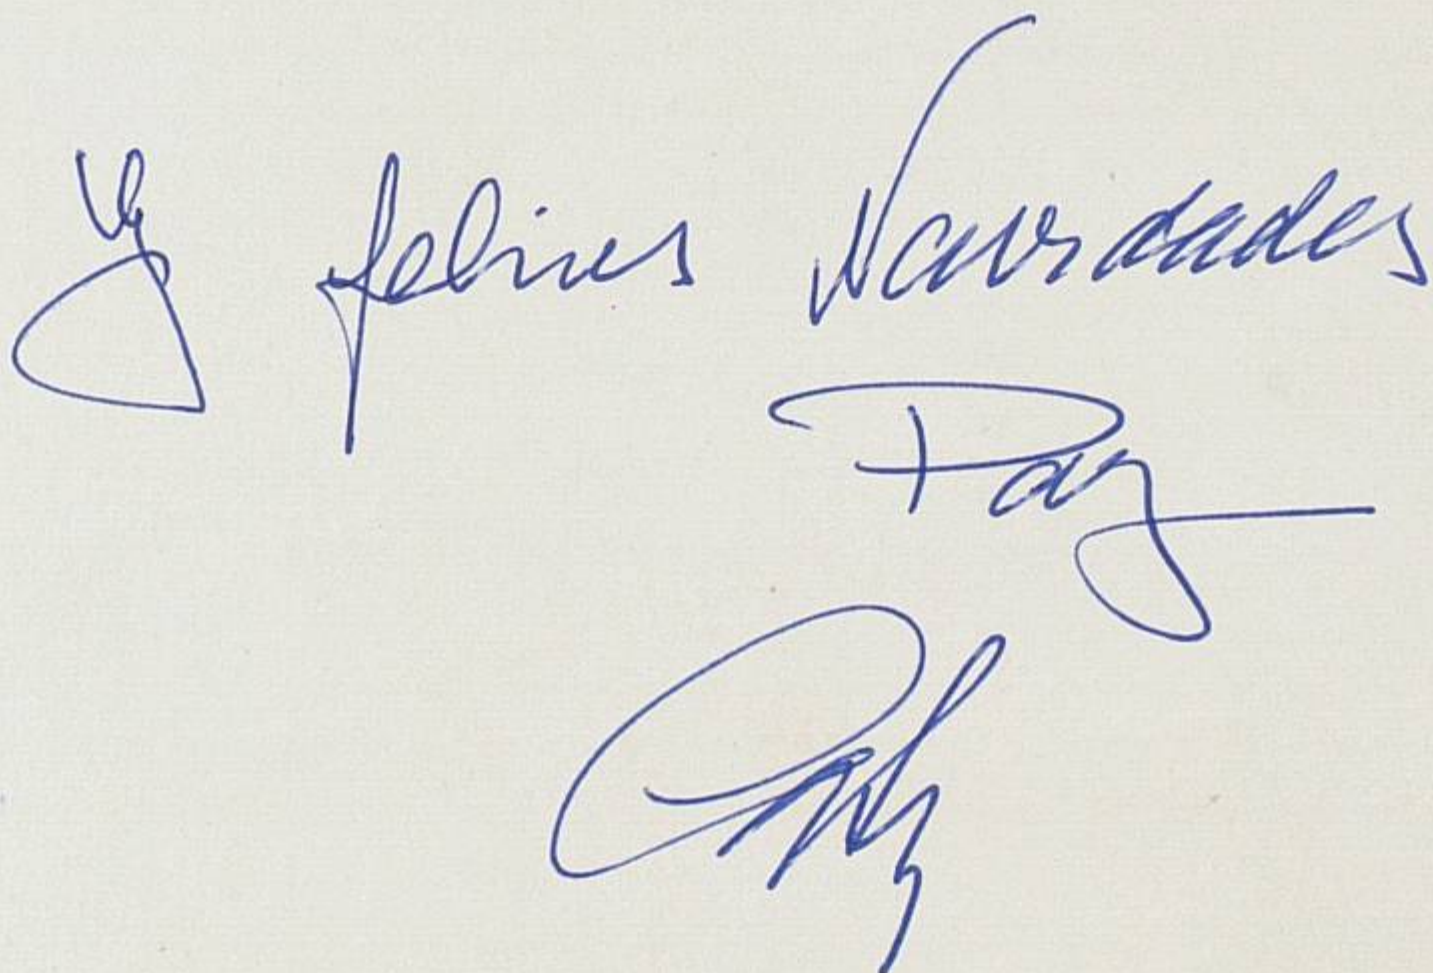 y felices Navidades
Paz